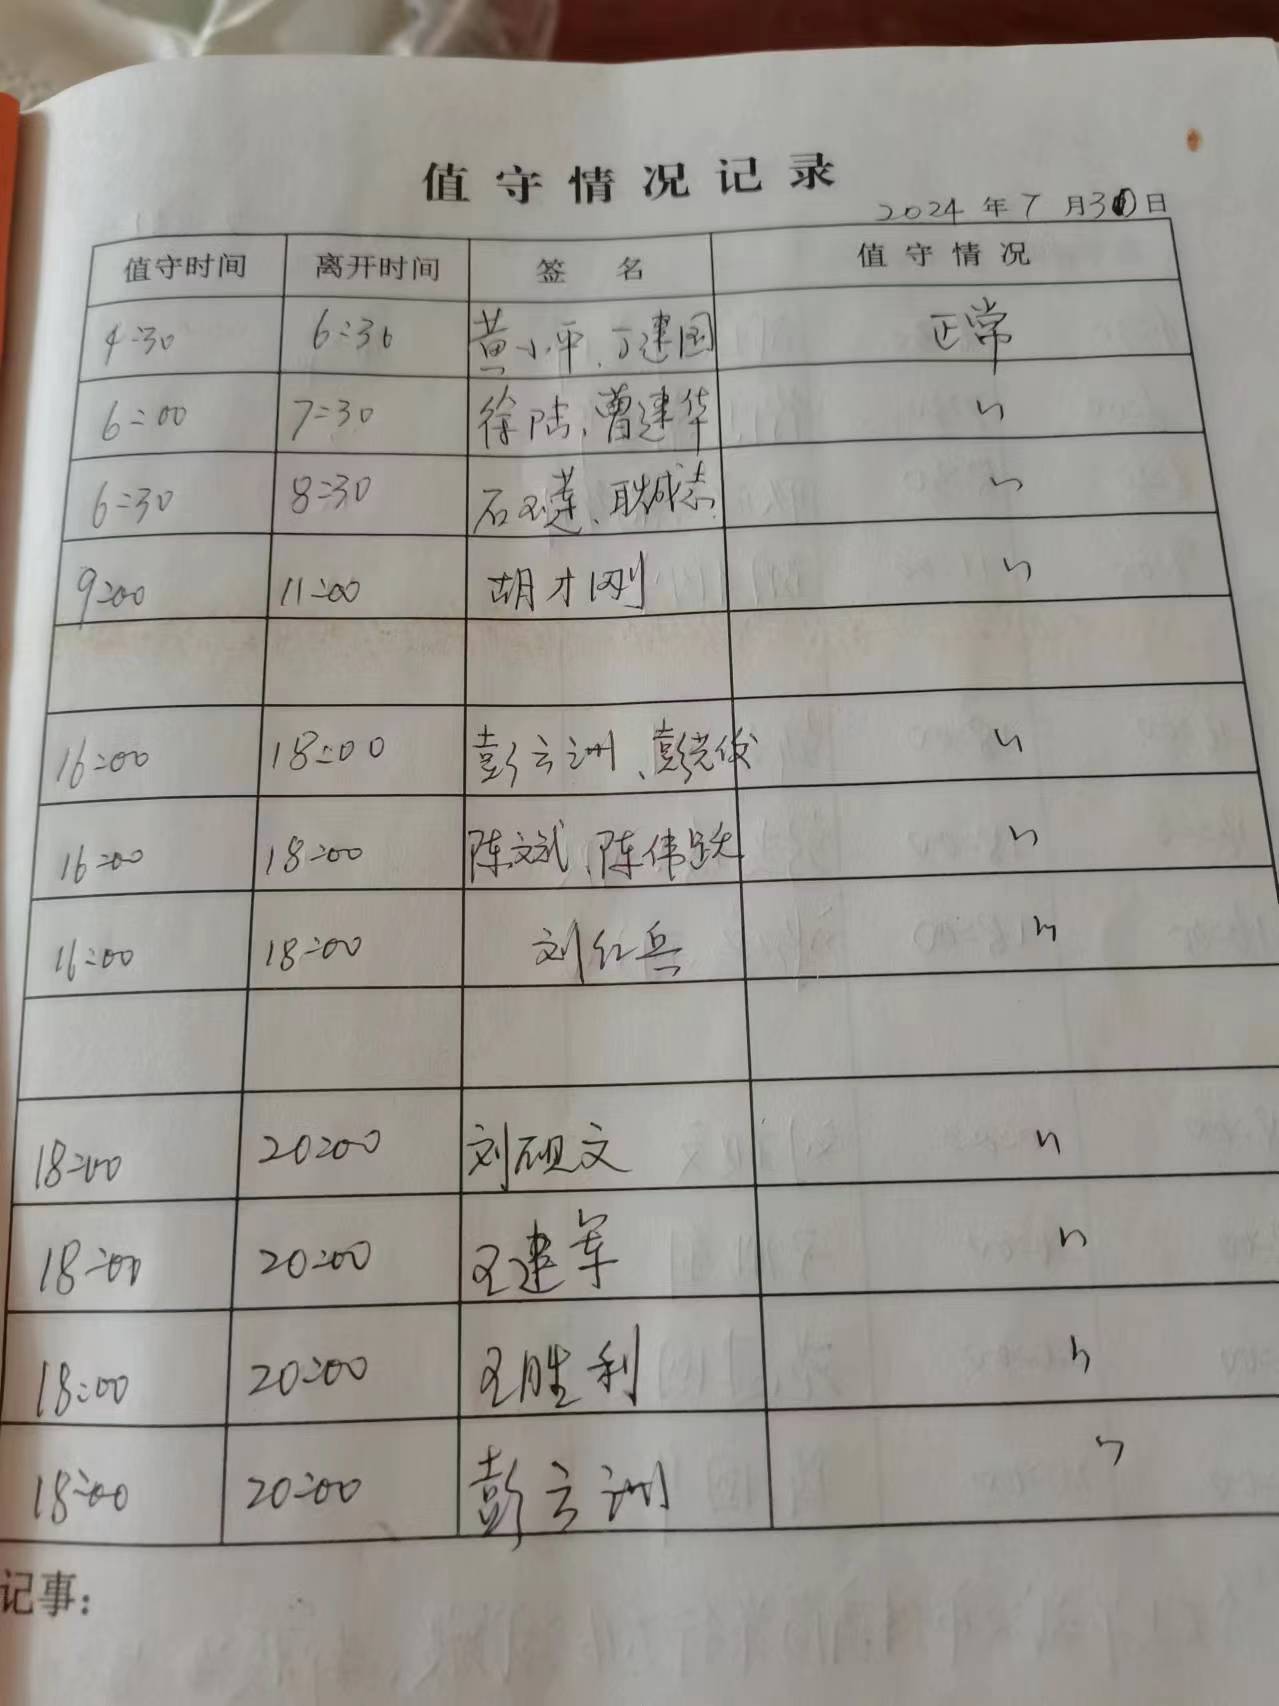 值守情况记录
2024年7月30日
值守时间 离开时间 签名 值守情况
4:30 6:30 黄小平、丁建国 正常
6:00 7:30 徐陆、曹建华 〃
6:30 8:30 石玉莲、耿成志 〃
9:00 11:00 胡才刚 〃
16:00 18:00 彭云洲、彭光俊 〃
16:00 18:00 陈文斌、陈伟跃 〃
16:00 18:00 刘红兵 〃
18:00 20:00 刘砚文 〃
18:00 20:00 王建军 〃
18:00 20:00 王胜利 〃
18:00 20:00 彭云洲 〃
记事：